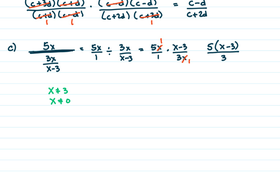 (c+3d)(c+d) / (c+d)(c-d) · (c-d)(c-d) / (c+2d)(c+3d) = c-d / c+2d
1 1 1
c) 5x / (3x / x-3) = 5x/1 ÷ 3x/x-3 = 5x/1 · x-3/3x 5(x-3)/3
1 1
x ≠ 3
x ≠ 0